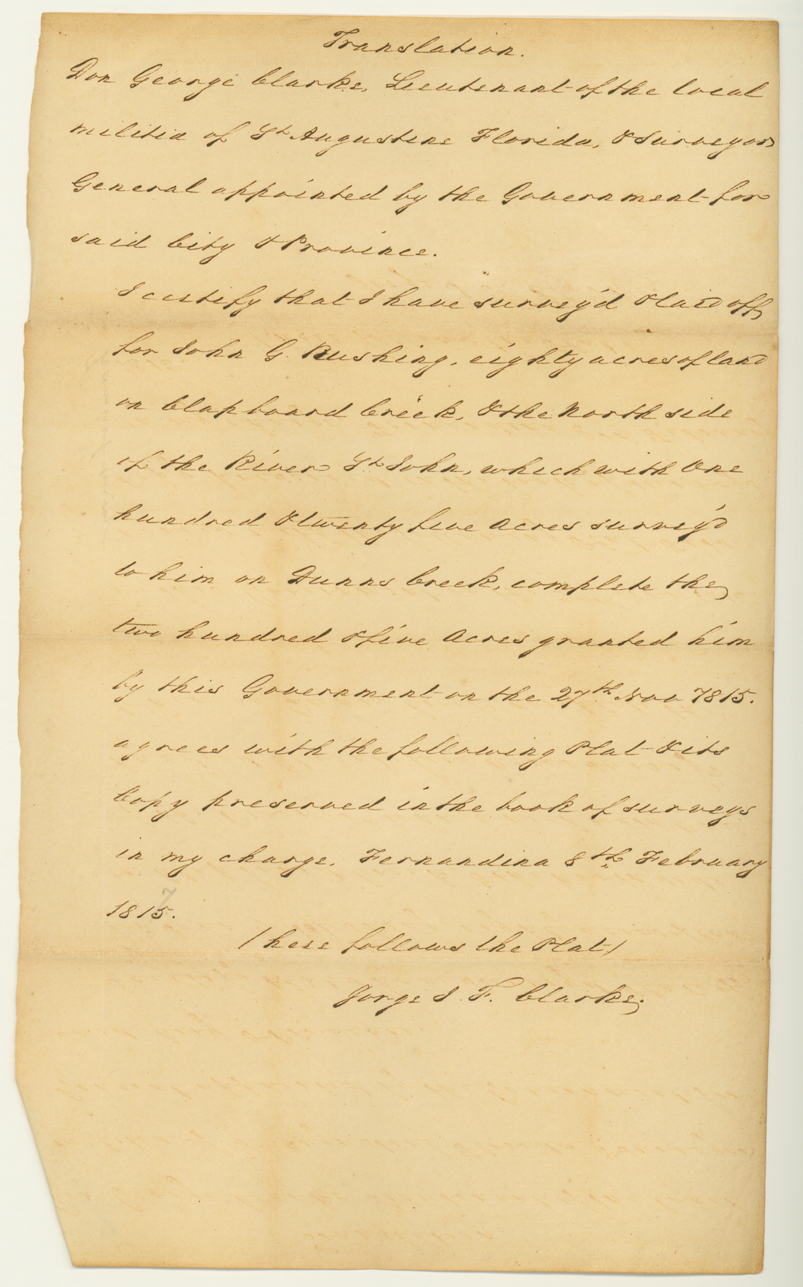 Translation.
Don George Clarke, Lieutenant of the local
militia of St Augustine Florida, & Surveyor
General appointed by the Government for
said City & Province.
I certify that I have survey'd & laid off
for John G. Rushing, eighty acres of land
on Clapboard Creek, & the North side
of the River St John, which with One
hundred & twenty five Acres survey'd
to him on Dunns Creek, complete the
two hundred & five Acres granted him
by this Government on the 27th Nov 1815.
agrees with the following Plat & its
Copy preserved in the book of surveys
in my charge. Fernandina 8th February
1815. 7
(here follows the Plat)
Jorge J. F. Clarke,